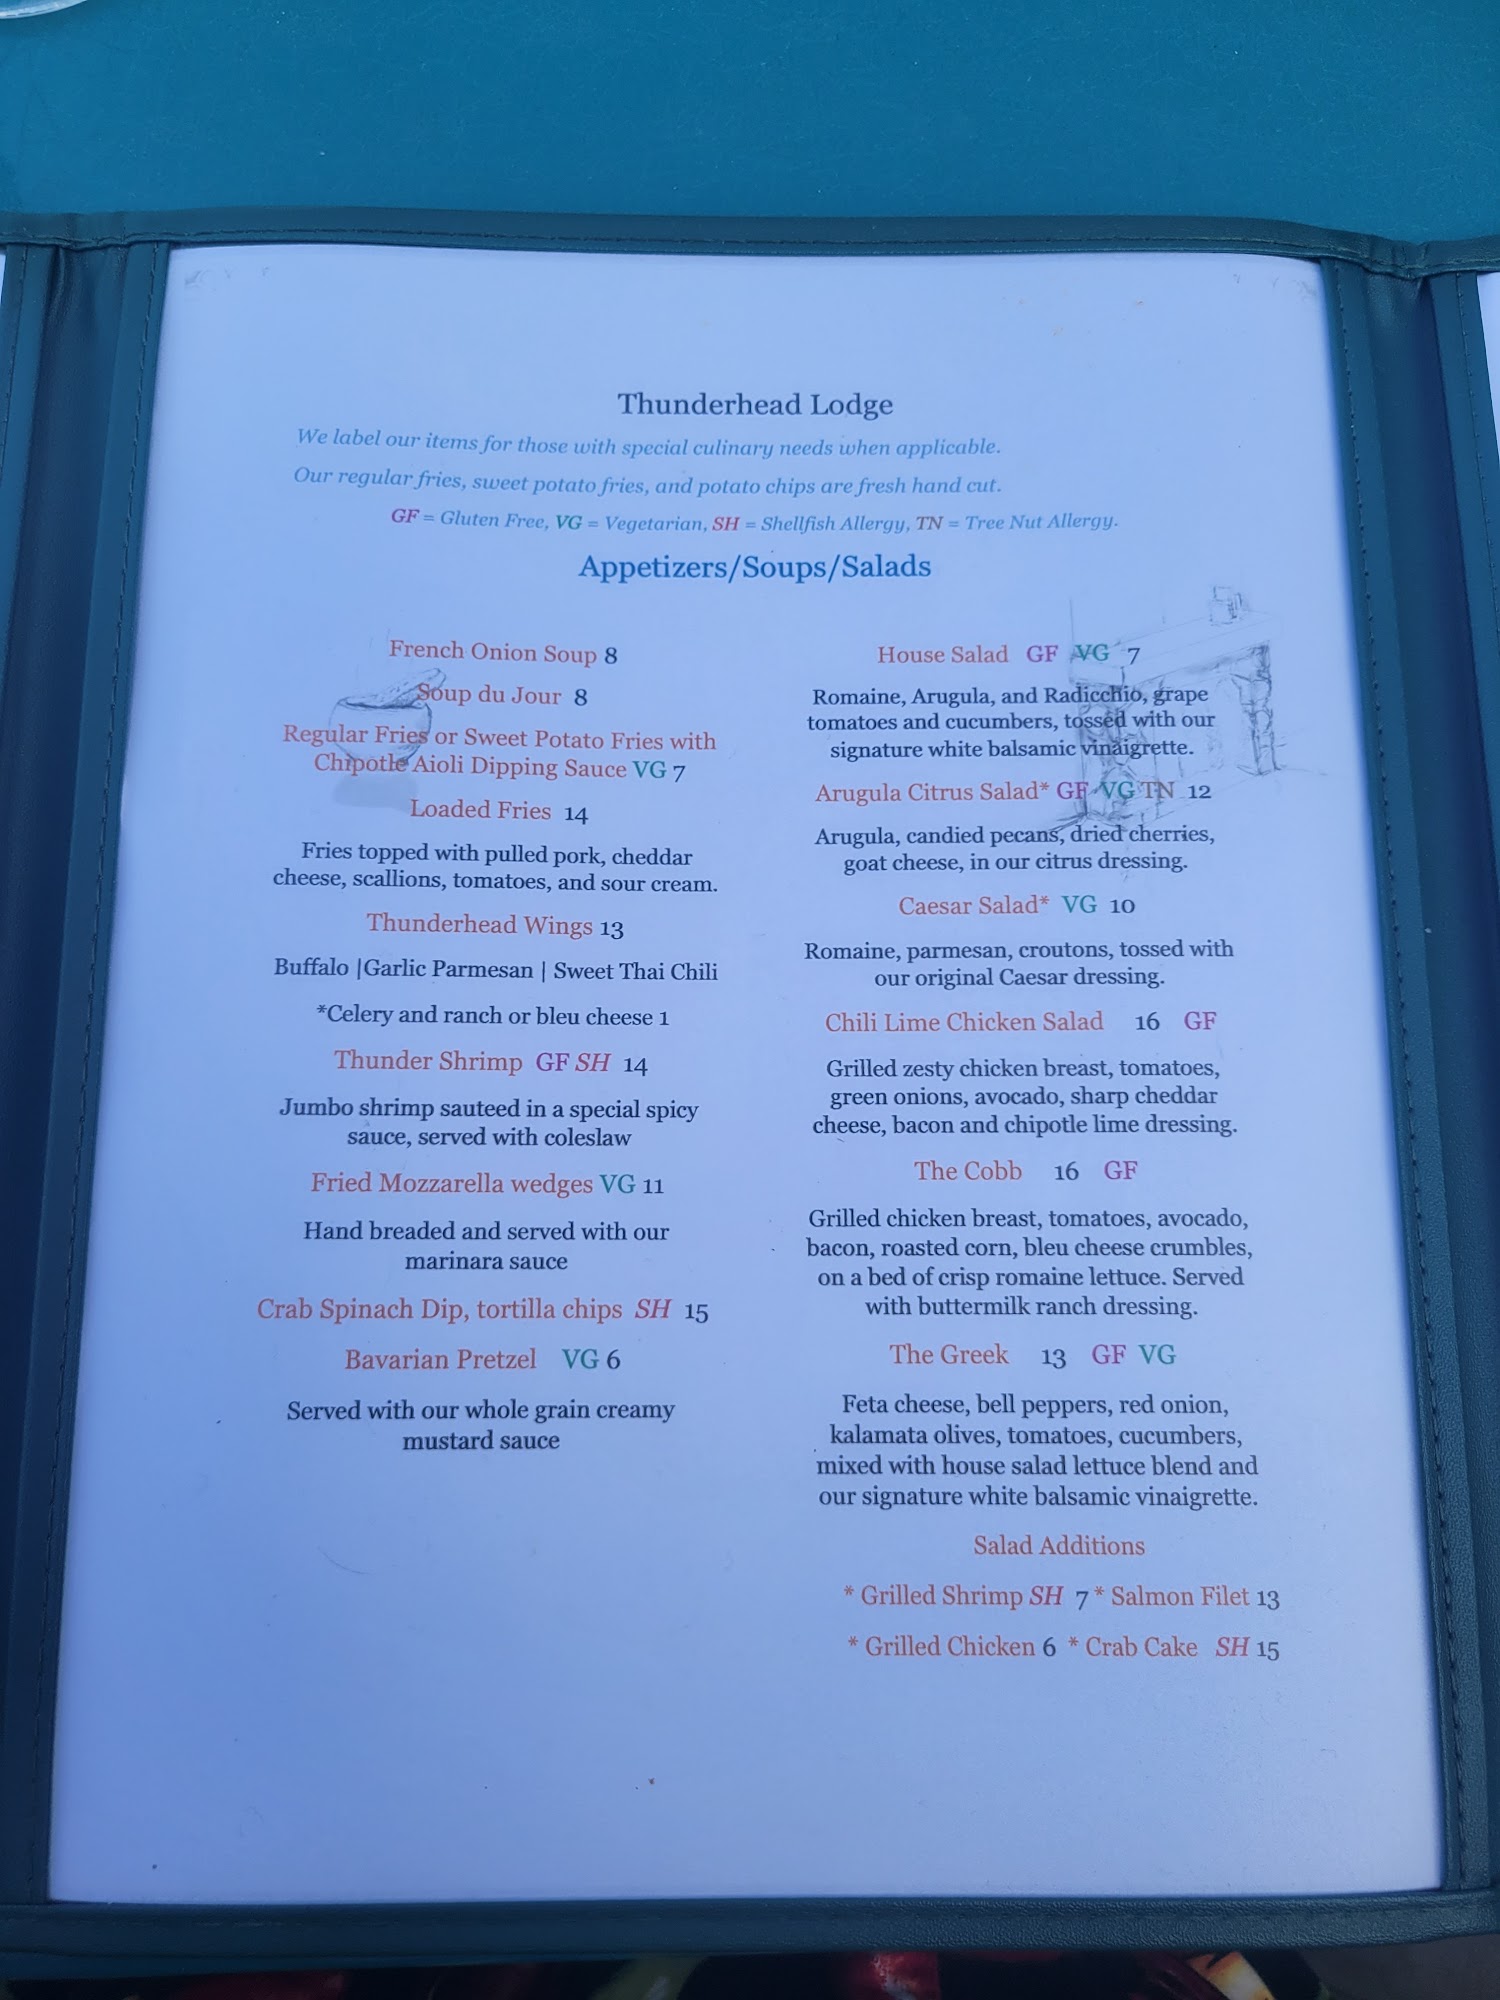 Thunderhead Lodge
We label our items for those with special culinary needs when applicable.
Our regular fries, sweet potato fries, and potato chips are fresh hand cut.
GF = Gluten Free, VG = Vegetarian, SH = Shellfish Allergy, TN = Tree Nut Allergy.
Appetizers/Soups/Salads
French Onion Soup 8
Soup du Jour 8
Regular Fries or Sweet Potato Fries with
Chipotle Aioli Dipping Sauce VG 7
Loaded Fries 14
Fries topped with pulled pork, cheddar
cheese, scallions, tomatoes, and sour cream.
Thunderhead Wings 13
Buffalo |Garlic Parmesan | Sweet Thai Chili
*Celery and ranch or bleu cheese 1
Thunder Shrimp GF SH 14
Jumbo shrimp sauteed in a special spicy
sauce, served with coleslaw
Fried Mozzarella wedges VG 11
Hand breaded and served with our
marinara sauce
Crab Spinach Dip, tortilla chips SH 15
Bavarian Pretzel VG 6
Served with our whole grain creamy
mustard sauce
House Salad GF VG 7
Romaine, Arugula, and Radicchio, grape
tomatoes and cucumbers, tossed with our
signature white balsamic vinaigrette.
Arugula Citrus Salad* GF VG TN 12
Arugula, candied pecans, dried cherries,
goat cheese, in our citrus dressing.
Caesar Salad* VG 10
Romaine, parmesan, croutons, tossed with
our original Caesar dressing.
Chili Lime Chicken Salad 16 GF
Grilled zesty chicken breast, tomatoes,
green onions, avocado, sharp cheddar
cheese, bacon and chipotle lime dressing.
The Cobb 16 GF
Grilled chicken breast, tomatoes, avocado,
bacon, roasted corn, bleu cheese crumbles,
on a bed of crisp romaine lettuce. Served
with buttermilk ranch dressing.
The Greek 13 GF VG
Feta cheese, bell peppers, red onion,
kalamata olives, tomatoes, cucumbers,
mixed with house salad lettuce blend and
our signature white balsamic vinaigrette.
Salad Additions
* Grilled Shrimp SH 7 * Salmon Filet 13
* Grilled Chicken 6 * Crab Cake SH 15